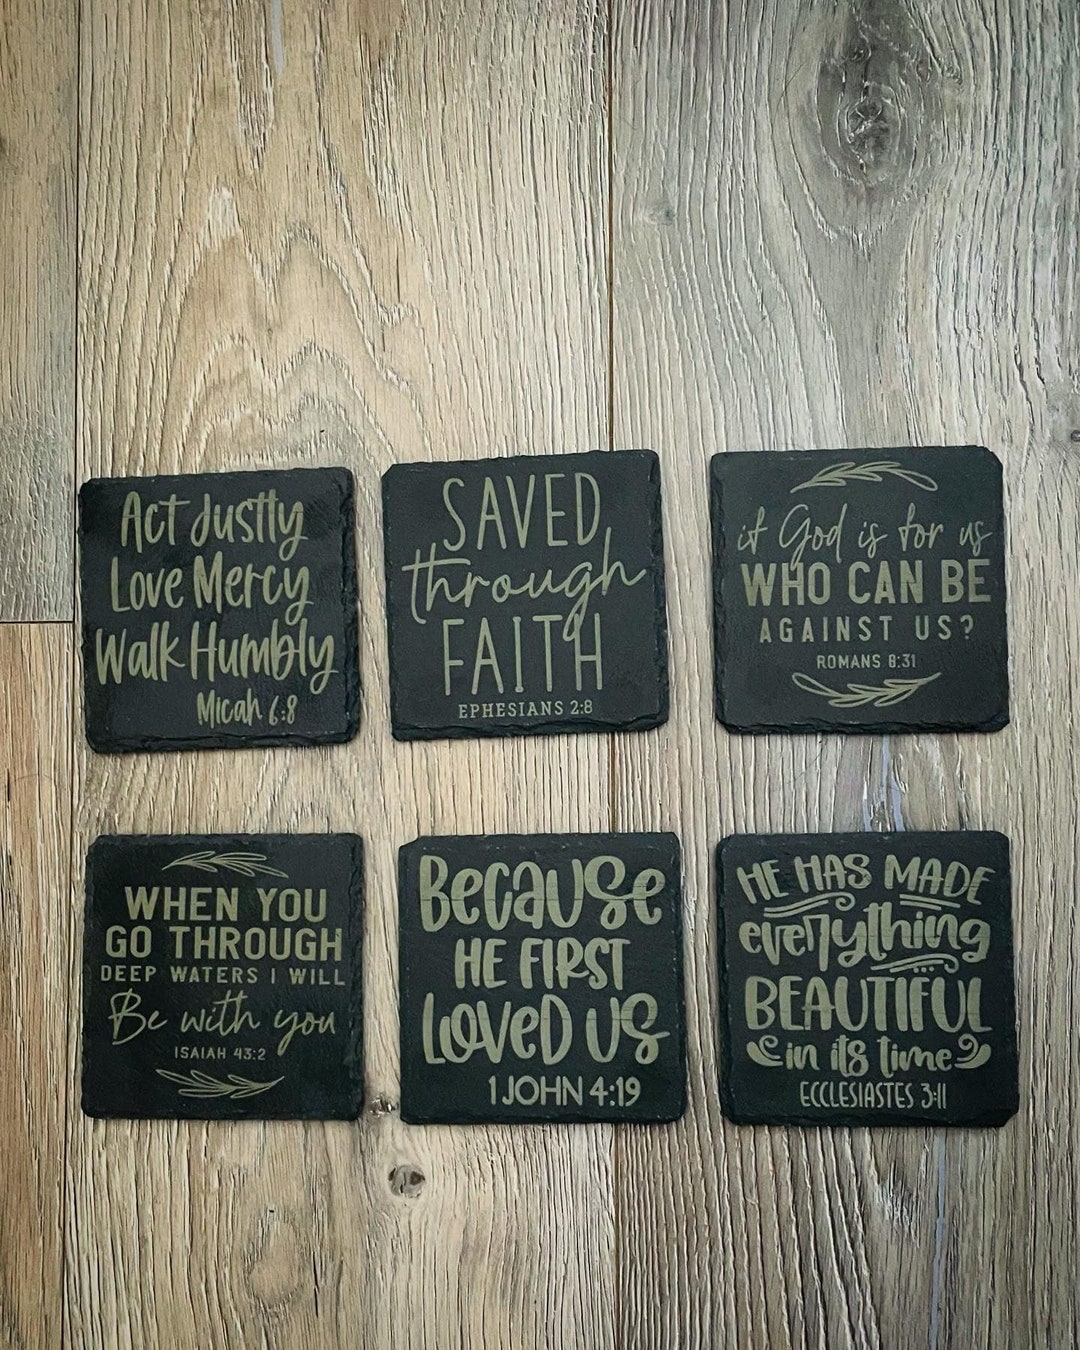 Act Justly
Love Mercy
Walk Humbly
Micah 6:8
SAVED
through
FAITH
EPHESIANS 2:8
if God is for us
WHO CAN BE
AGAINST US?
ROMANS 8:31
WHEN YOU
GO THROUGH
DEEP WATERS I WILL
Be with you
ISAIAH 43:2
Because
HE FIRST
LOVED US
1 JOHN 4:19
HE HAS MADE
everything
BEAUTIFUL
in its time
ECCLESIASTES 3:11